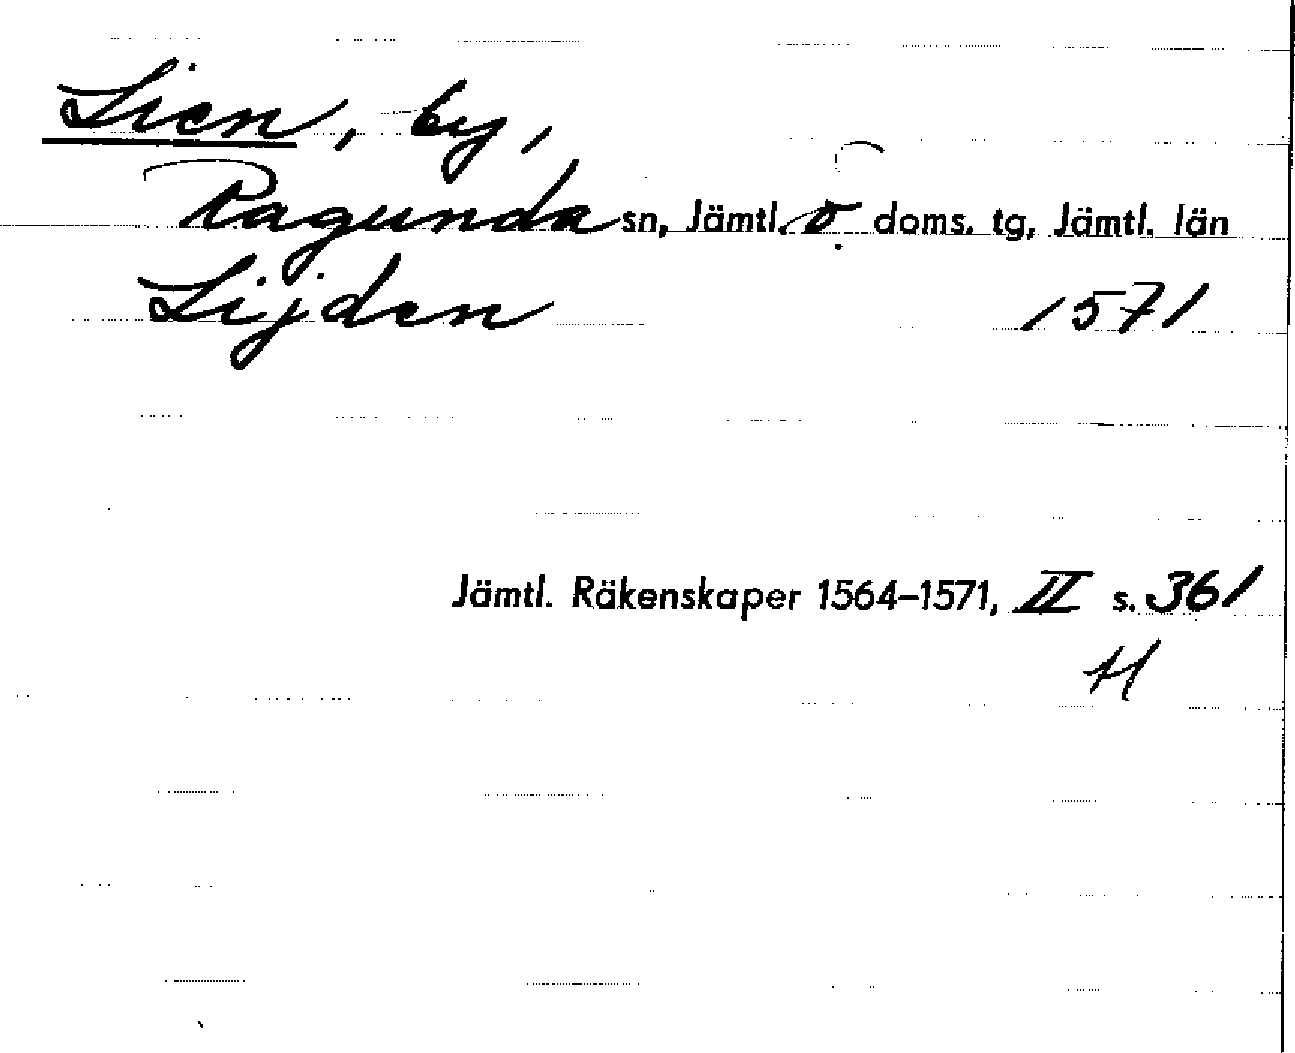 Lien, by,
Ragunda sn, Jämtl. ö doms. tg, Jämtl. län
Lijden 1571
Jämtl. Räkenskaper 1564-1571, II s. 361
H